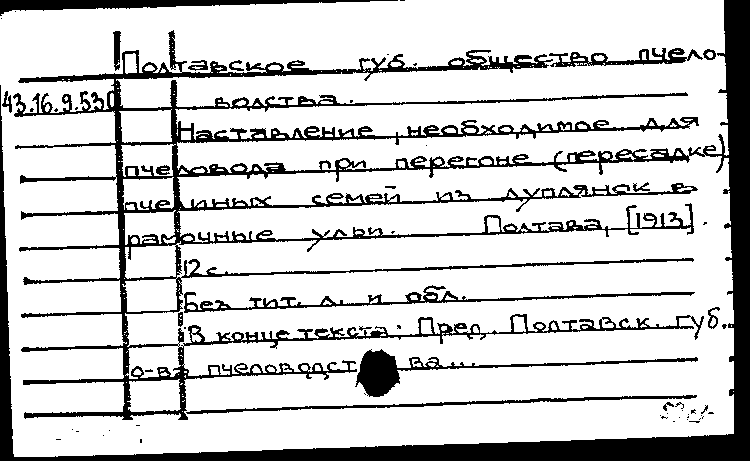 Полтавское губ. общество пчело-
43.16.9.530 водства.
Наставление, необходимое для
пчеловода при перегоне (пересадке)
пчелиных семей из дуплянок в
рамочные ульи. Полтава, [1913].
12 с.
Без тит. л. и обл.
В конце текста: Пред. Полтавск. губ.
о-ва пчеловодства...